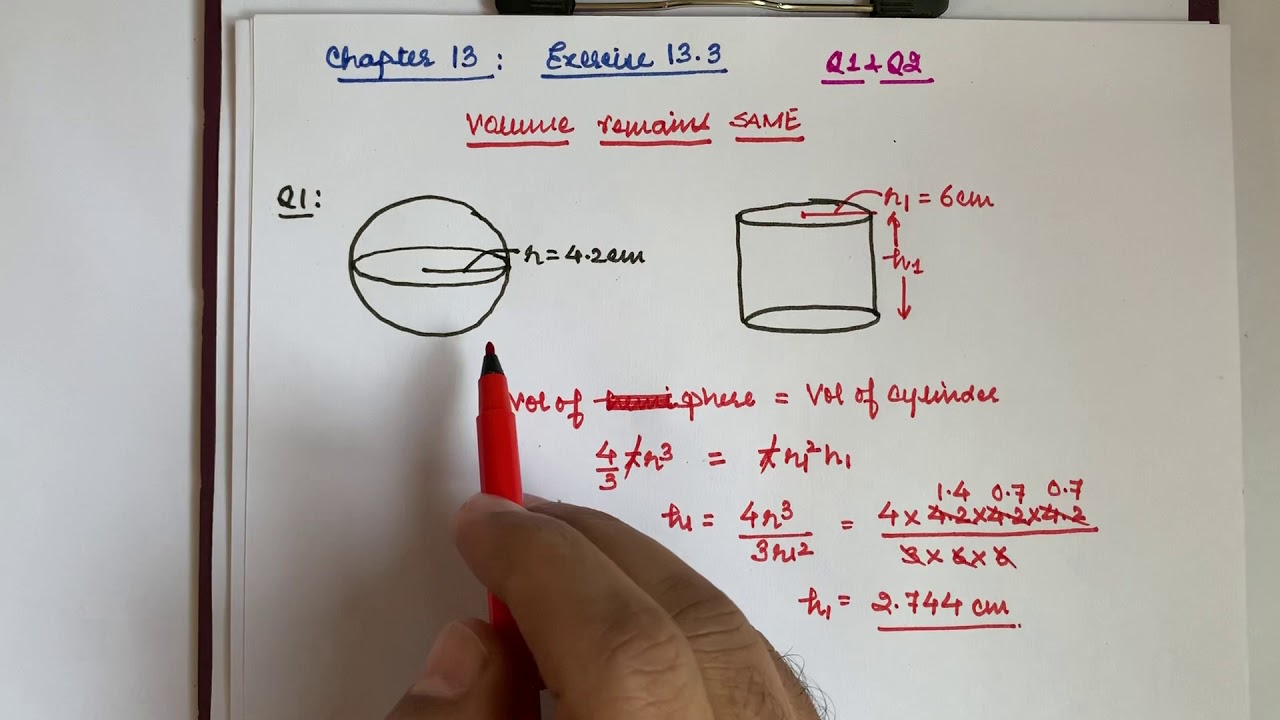 Chapter 13 : Exercise 13.3 Q1+Q2
Volume remains SAME
Q1:
r = 4.2cm
r₁ = 6cm
h₁
Vol of sphere = Vol of cylinder
4/3 πr³ = πr₁²h₁
h₁ = 4r³/3r₁² = 4×4.2×4.2×4.2/3×6×6
1.4 0.7 0.7
h₁ = 2.744 cm